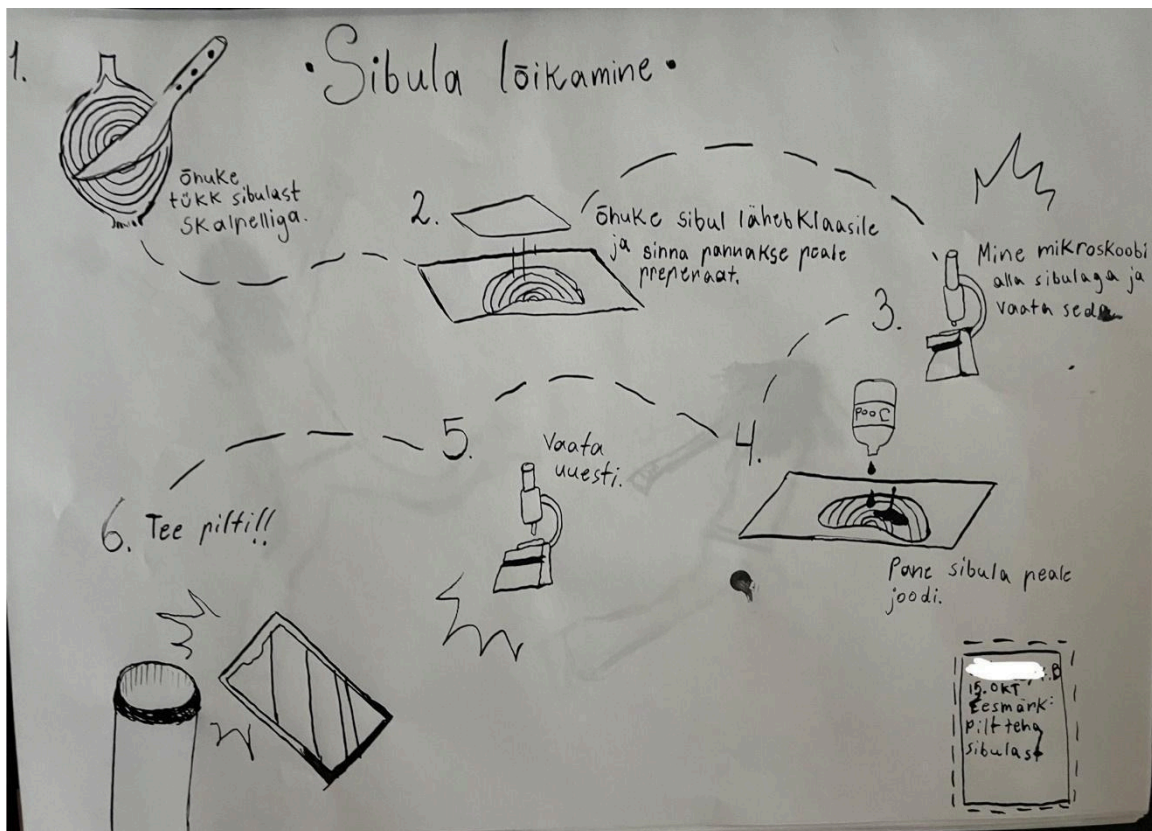 1.
• Sibula lõikamine •
õhuke
tükk sibulast
skalpelliga.
2.
õhuke sibul läheb klaasile
ja sinna pannakse peale
preperaat.
3.
Mine mikroskoobi
alla sibulaga ja
vaata seda
4.
Pane sibula peale
joodi.
5.
Vaata
uuesti.
6. Tee pilti!!
.B
15. OKT
Eesmärk:
pilt teha
sibulast